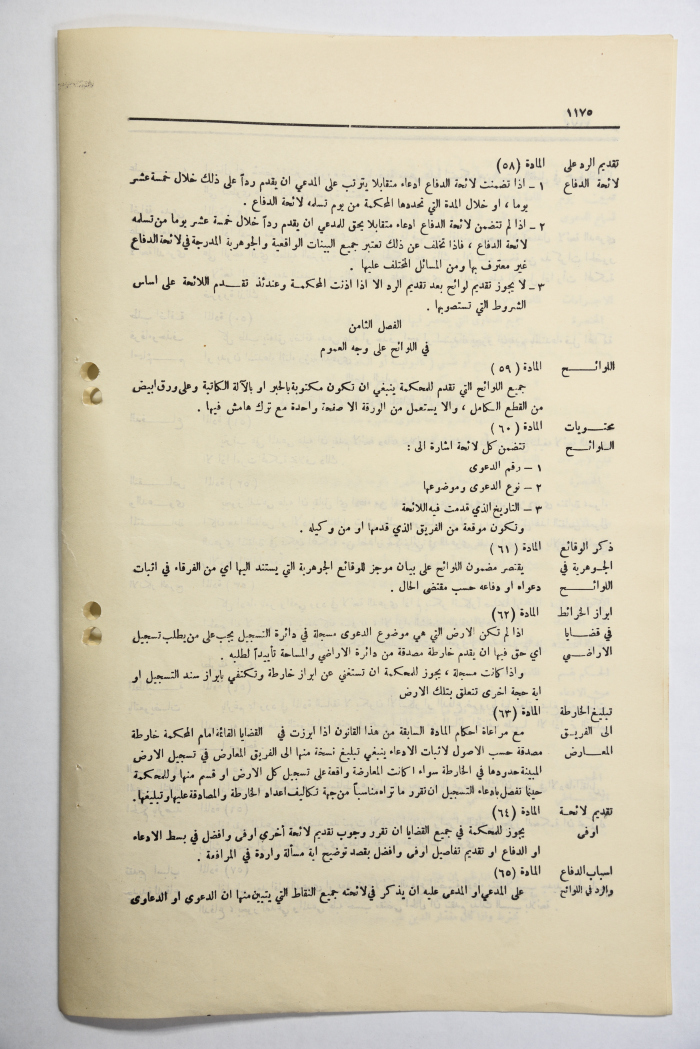 ١١٧٥
تقديم الرد على المادة (٥٨)
لائحة الدفاع ١ – اذا تضمنت لائحة الدفاع ادعاء متقابلا يترتب على المدعي ان يقدم رداً على ذلك خلال خمسة عشر
يوما ، او خلال المدة التي تحددها المحكمة من يوم تسلمه لائحة الدفاع .
٢ – اذا لم تتضمن لائحة الدفاع ادعاء متقابلا يحق للمدعي ان يقدم رداً خلال خمسة عشر يوما من تسلمه
لائحة الدفاع ، فاذا تخلف عن ذلك تعتبر جميع البينات الواقعية والجوهرية المدرجة في لائحة الدفاع
غير معترف بها ومن المسائل المختلف عليها .
٣ – لا يجوز تقديم لوائح بعد تقديم الرد الا اذا اذنت المحكمة وعندئذ تقدم اللائحة على اساس
الشروط التي تستصوبها .
الفصل الثامن
في اللوائح على وجه العموم
اللوائح المادة (٥٩)
جميع اللوائح التي تقدم للمحكمة ينبغي ان تكون مكتوبة بالحبر او بالآلة الكاتبة وعلى ورق ابيض
من القطع الكامل ، والا يستعمل من الورقة الا صفحة واحدة مع ترك هامش فيها .
محتويات المادة (٦٠)
اللوائح تتضمن كل لائحة اشارة الى :
١ – رقم الدعوى
٢ – نوع الدعوى وموضوعها
٣ – التاريخ الذي قدمت فيه اللائحة
وتكون موقعة من الفريق الذي قدمها او من وكيله .
ذكر الوقائع المادة (٦١)
الجوهرية في يقتصر مضمون اللوائح على بيان موجز للوقائع الجوهرية التي يستند اليها اي من الفرقاء في اثبات
اللوائح دعواه او دفاعه حسب مقتضى الحال .
ابراز الخرائط المادة (٦٢)
في قضايا اذا لم تكن الارض التي هي موضوع الدعوى مسجلة في دائرة التسجيل يجب على من يطلب تسجيل
الاراضي اي حق فيها ان يقدم خارطة مصدقة من دائرة الاراضي والمساحة تأييداً لطلبه .
واذا كانت مسجلة ، يجوز للمحكمة ان تستغني عن ابراز خارطة وتكتفي بابراز سند التسجيل او
اية حجة اخرى تتعلق بتلك الارض
تبليغ الخارطة المادة (٦٣)
الى الفريق مع مراعاة احكام المادة السابقة من هذا القانون اذا ابرزت في القضايا القائمة امام المحكمة خارطة
المعارض مصدقة حسب الاصول لاثبات الادعاء ينبغي تبليغ نسخة منها الى الفريق المعارض في تسجيل الارض
المبينة حدودها في الخارطة سواء اكانت المعارضة واقعة على تسجيل كل الارض او قسم منها وللمحكمة
حينما تفصل بادعاء التسجيل ان تقرر ما تراه مناسباً من جهة تكاليف اعداد الخارطة والمصادقة عليها وتبليغها.
تقديم لائحة المادة (٦٤)
اوفى يجوز للمحكمة في جميع القضايا ان تقرر وجوب تقديم لائحة أخرى اوفى وافضل في بسط الادعاء
او الدفاع او تقديم تفاصيل اوفى وافضل بقصد توضيح اية مسألة واردة في المرافعة .
اسباب الدفاع المادة (٦٥)
والرد في اللوائح على المدعي او المدعى عليه ان يذكر في لائحته جميع النقاط التي يتبين منها ان الدعوى او الدعاوى